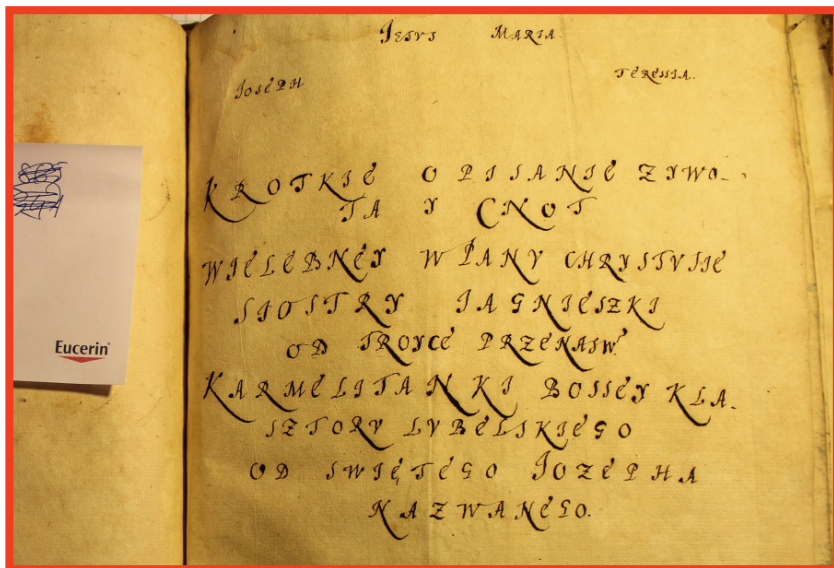 JESUS MARIA
JOSEPH TERESSIA.
KROTKIE OPISANIE ZYWO-
TA Y CNOT
WIELEBNEY W PANV CHRYSTVSIE
SIOSTRY JAGNIESZKI
OD TROYCE PRZENASW.
KARMELITANKI BOSSEY KLA-
SZTORV LVBELSKIEGO
OD SWIĘTEGO JOZEPHA
NAZWANEGO.
Eucerin